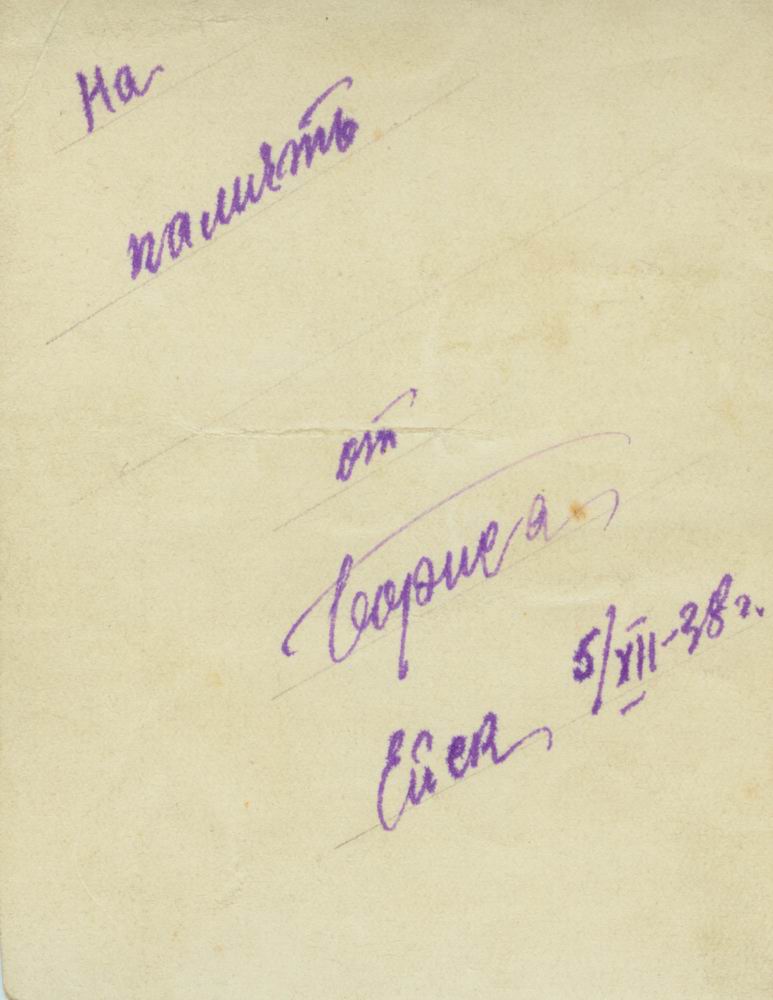 На
память
от
Бориса
5/XII-38 г.
Ейск